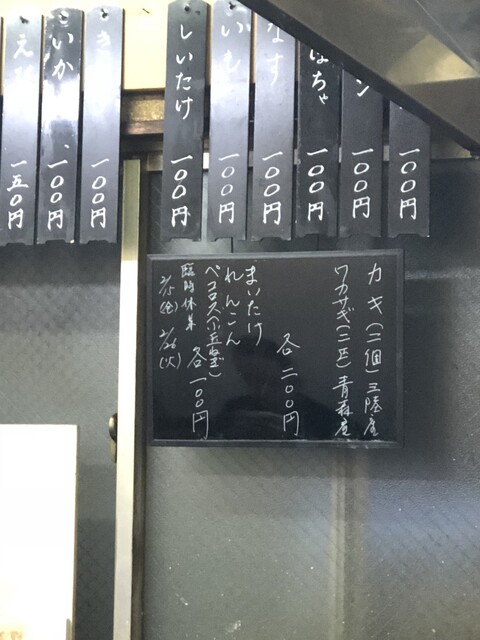 一〇〇円
ン 一〇〇円
ぼちゃ 一〇〇円
なす 一〇〇円
いも 一〇〇円
しいたけ 一〇〇円
き 一〇〇円
いか 一〇〇円
えび 一五〇円
カキ(二個)三陸産
ワカサギ(二匹)青森産
各 二〇〇円
まいたけ
れんこん
ペコロス(小玉ねぎ)
各 一〇〇円
臨時休業
2/15(金) 2/26(火)